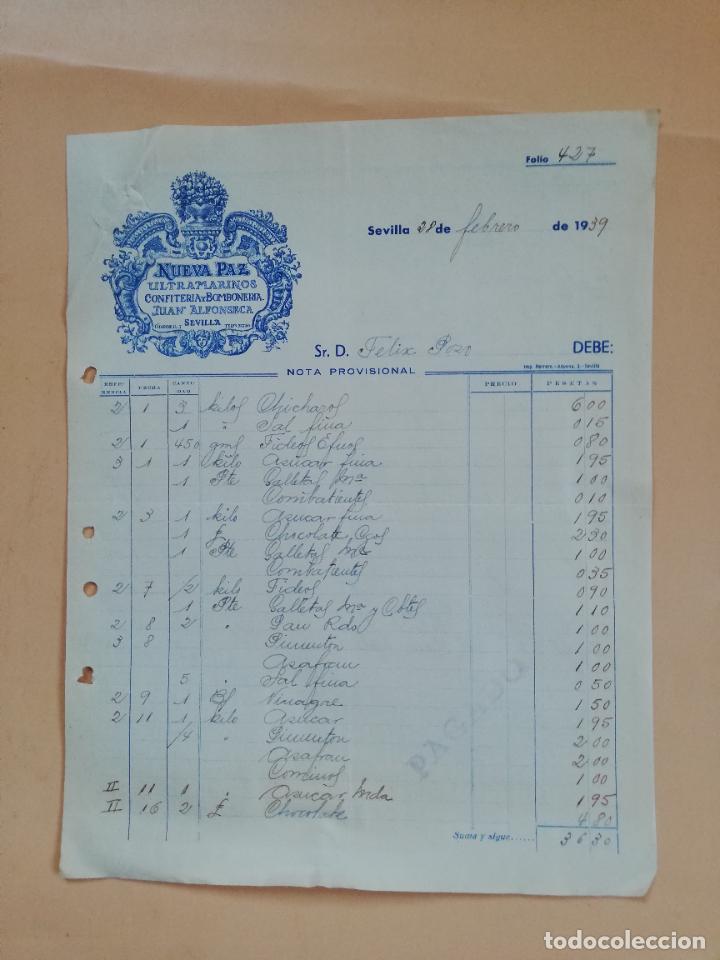 Folio 427
Sevilla 28 de febrero de 1939
NUEVA PAZ
ULTRAMARINOS
CONFITERIA Y BOMBONERIA
JUAN ALFONSECA
SEVILLA
Sr. D. Felix Pozo DEBE:
NOTA PROVISIONAL
REFERENCIA FECHA CANTIDAD PRECIO PESETAS
2 1 3 kilos Chicharos 6 00
1 " Sal fina 0 15
2 1 450 gms Fideos Efnos 0 80
3 1 1 kilo Azucar fina 1 95
1 Pte Galletas Ma 1 00
Combatientes 0 10
2 3 1 kilo Azucar fina 1 95
1 £ Chocolate 2 30
1 Pte Galletas Ma 1 00
Combatientes 0 35
2 7 1/2 kilo Fideos 0 90
1 Pte Galletas Ma y Cbtes 1 10
2 8 2 " Pan Rdo 1 00
3 8 Pimenton 1 00
Asafran 1 00
5 " Sal fina 0 50
2 9 1 Vinagre 1 50
2 11 1 kilo Azucar 1 95
1/4 " Pimenton 2 00
Asafran 2 00
Cominos 1 00
II 11 1 " Azucar Mda 1 95
II 16 2 £ Chocolate 4 80
Suma y sigue...... 36 30
PAGADO
todocoleccion